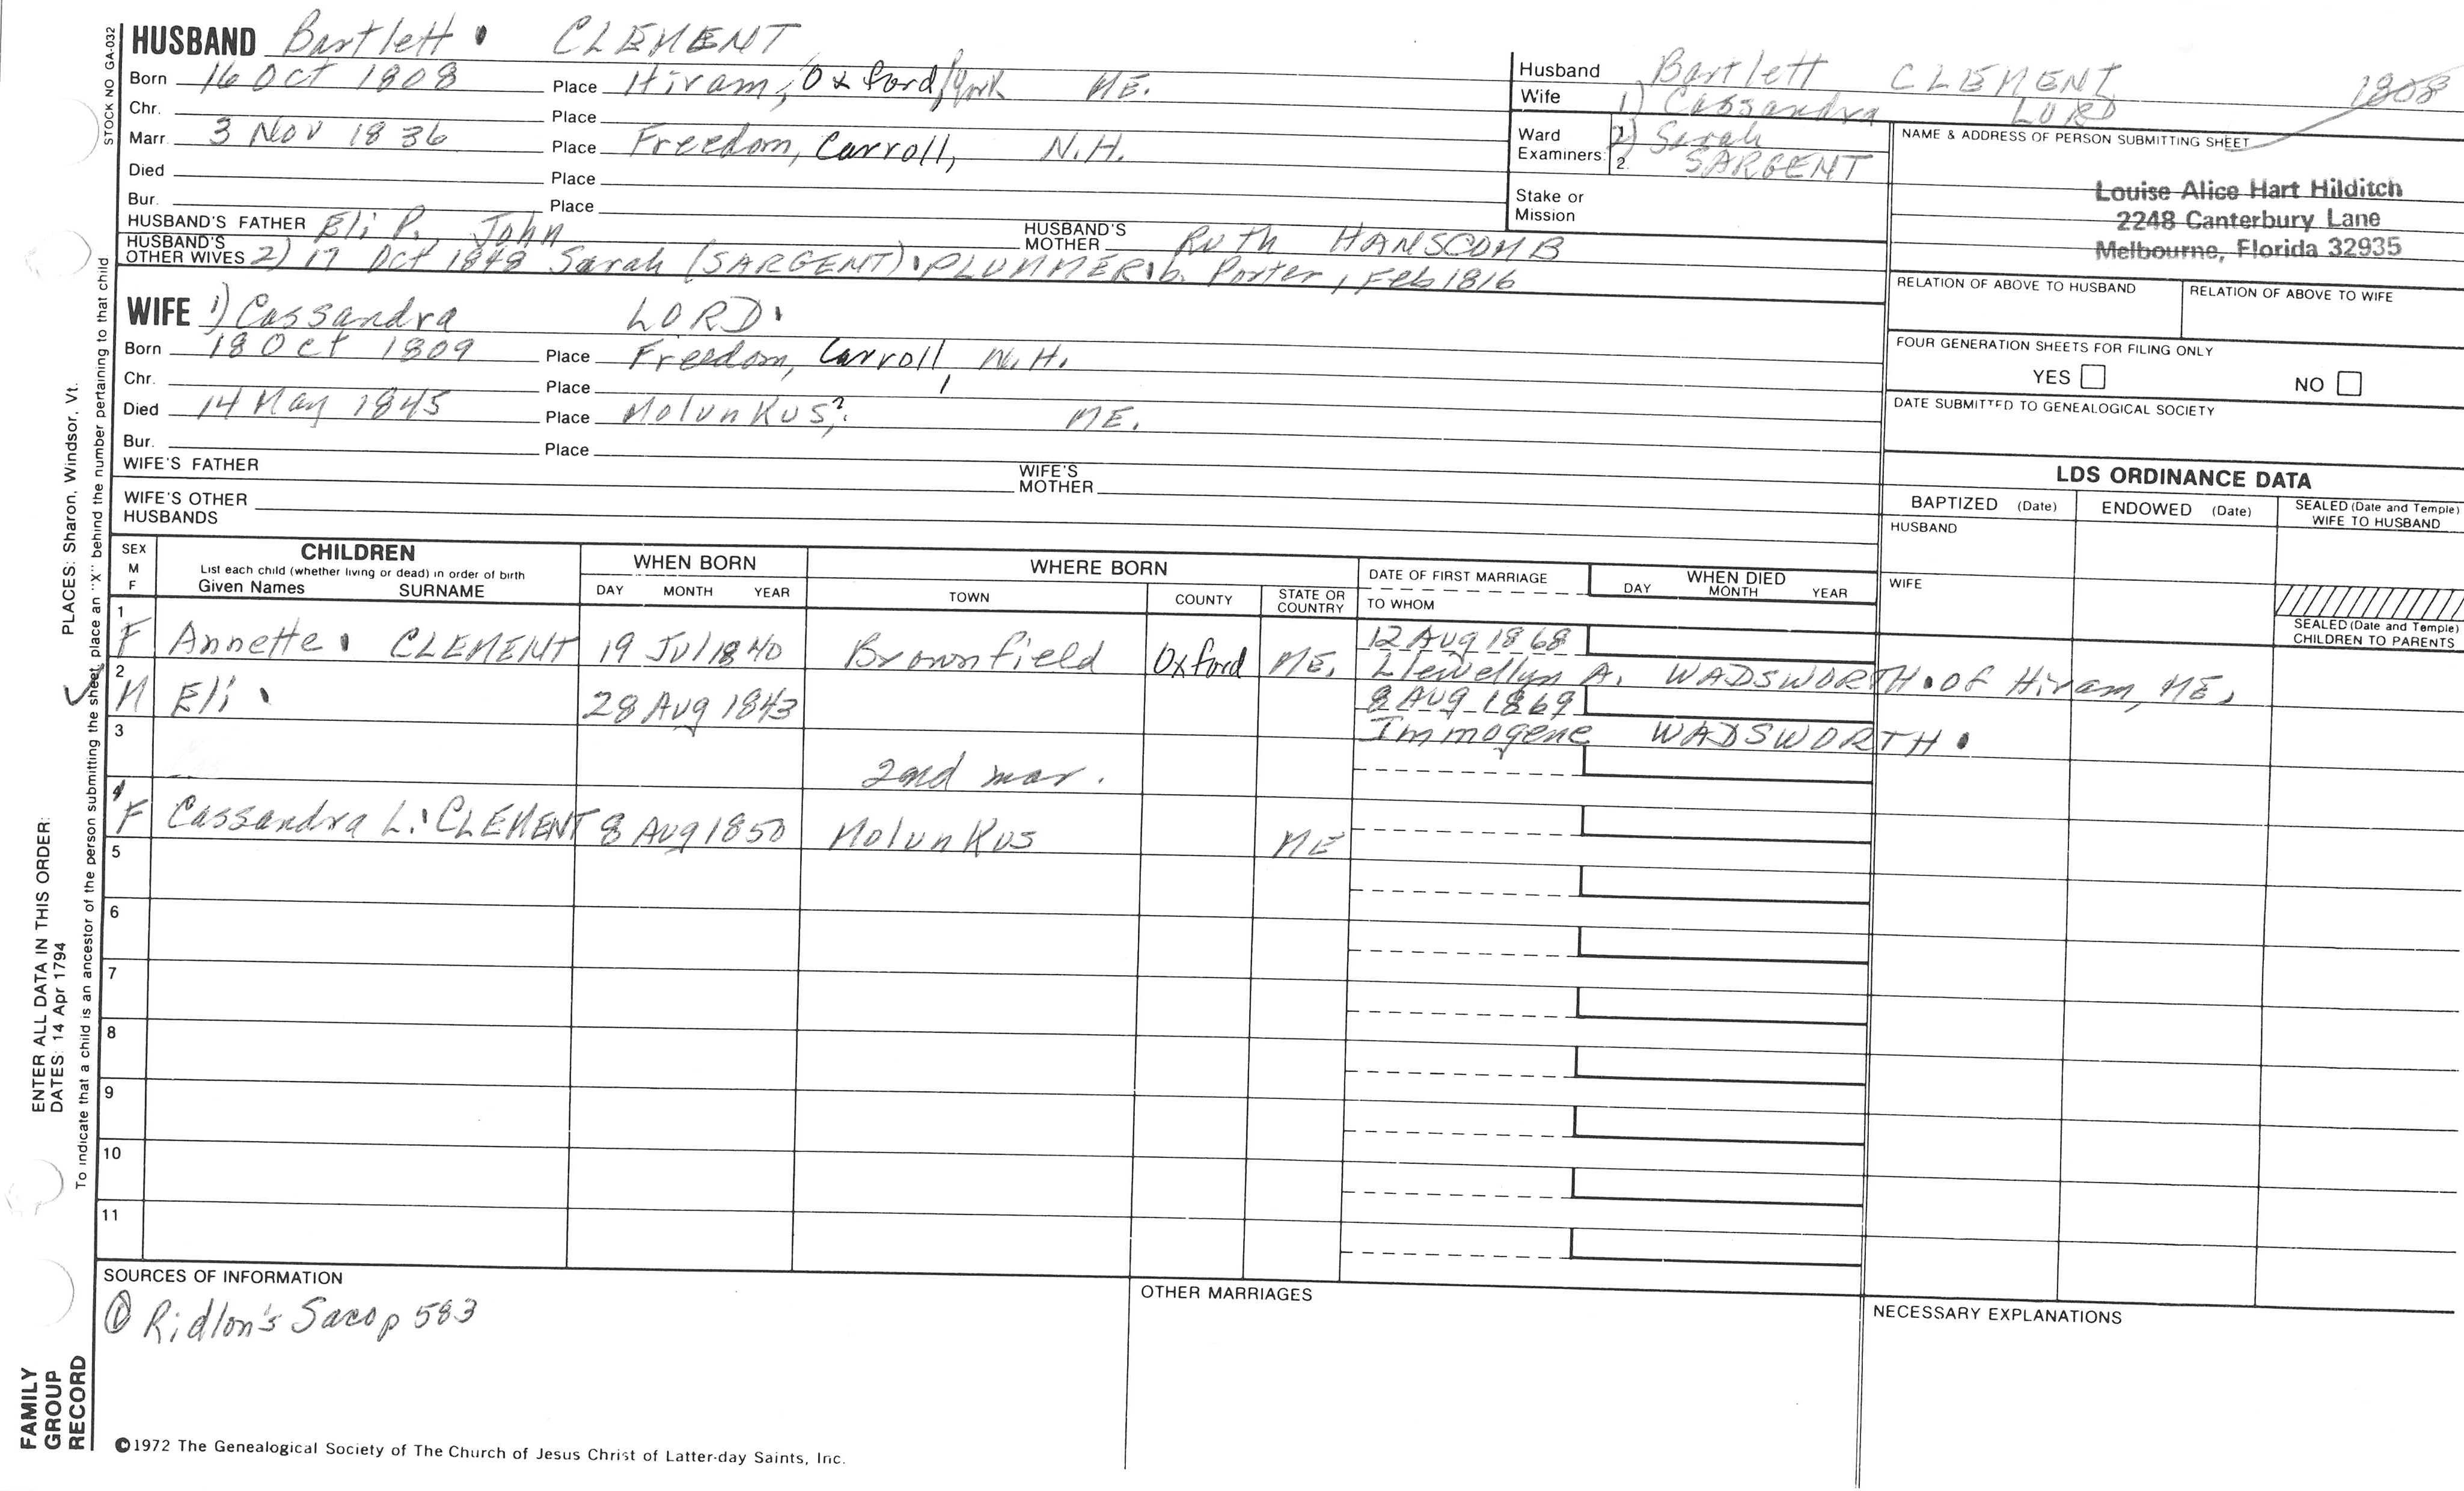 STOCK NO GA-032
HUSBAND Bartlett CLEMENT
Born 16 Oct 1808 Place Hiram, Oxford, York ME.
Chr. Place
Marr. 3 Nov 1836 Place Freedom, Carroll, N.H.
Died Place
Bur. Place
HUSBAND'S FATHER Eli P., John HUSBAND'S MOTHER Ruth HANSCOMB
HUSBAND'S OTHER WIVES 2) 17 Oct 1848 Sarah (SARGENT) PLUMMER b. Porter, Feb 1816
WIFE 1) Cassandra LORD
Born 18 Oct 1809 Place Freedom, Carroll, N.H.
Chr. Place
Died 14 May 1845 Place Molunkus?, ME.
Bur. Place
WIFE'S FATHER WIFE'S MOTHER
WIFE'S OTHER HUSBANDS
Husband Bartlett CLEMENT 1808
Wife 1) Cassandra LORD
Ward Examiners: 1. 2) Sarah
2. SARGENT
Stake or Mission
NAME & ADDRESS OF PERSON SUBMITTING SHEET
Louise Alice Hart Hilditch
2248 Canterbury Lane
Melbourne, Florida 32935
RELATION OF ABOVE TO HUSBAND RELATION OF ABOVE TO WIFE
FOUR GENERATION SHEETS FOR FILING ONLY
YES NO
DATE SUBMITTED TO GENEALOGICAL SOCIETY
LDS ORDINANCE DATA
BAPTIZED (Date) ENDOWED (Date) SEALED (Date and Temple) WIFE TO HUSBAND
HUSBAND
WIFE
SEALED (Date and Temple) CHILDREN TO PARENTS
SEX M F CHILDREN WHEN BORN WHERE BORN DATE OF FIRST MARRIAGE WHEN DIED
List each child (whether living or dead) in order of birth
Given Names SURNAME DAY MONTH YEAR TOWN COUNTY STATE OR COUNTRY TO WHOM DAY MONTH YEAR
1 F Annette CLEMENT 19 Jul 1840 Brownfield Oxford ME. 12 Aug 1868
Llewellyn A. WADSWORTH of Hiram, ME.
2 M Eli 28 Aug 1843 8 Aug 1869
Immogene WADSWORTH
3 2nd mar.
4 F Cassandra L. CLEMENT 8 Aug 1850 Molunkus ME
5
6
7
8
9
10
11
SOURCES OF INFORMATION
① Ridlon's Saco p 583
OTHER MARRIAGES
NECESSARY EXPLANATIONS
©1972 The Genealogical Society of The Church of Jesus Christ of Latter-day Saints, Inc.
FAMILY
GROUP
RECORD
ENTER ALL DATA IN THIS ORDER:
DATES: 14 Apr 1794
PLACES: Sharon, Windsor, Vt.
To indicate that a child is an ancestor of the person submitting the sheet, place an "X" behind the number pertaining to that child